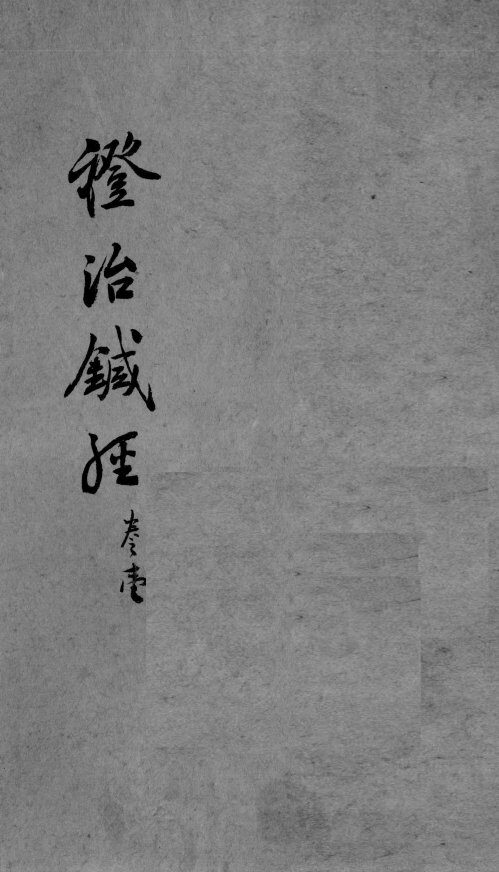 證治鍼經
卷壹